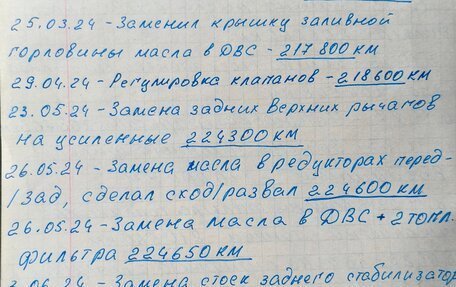 25.03.24 - Заменил крышку заливной
горловины масла в ДВС - 217800 км
29.04.24 - Регулировка клапанов - 218600 км
23.05.24 - Замена задних верхних рычагов
на усиленные 224300 км
26.05.24 - Замена масла в редукторах перед-
/зад, сделал сход/развал 224600 км
26.05.24 - Замена масла в ДВС + 2 топл.
фильтра 224650 км
06.24 - Замена стоек заднего стабилизатор